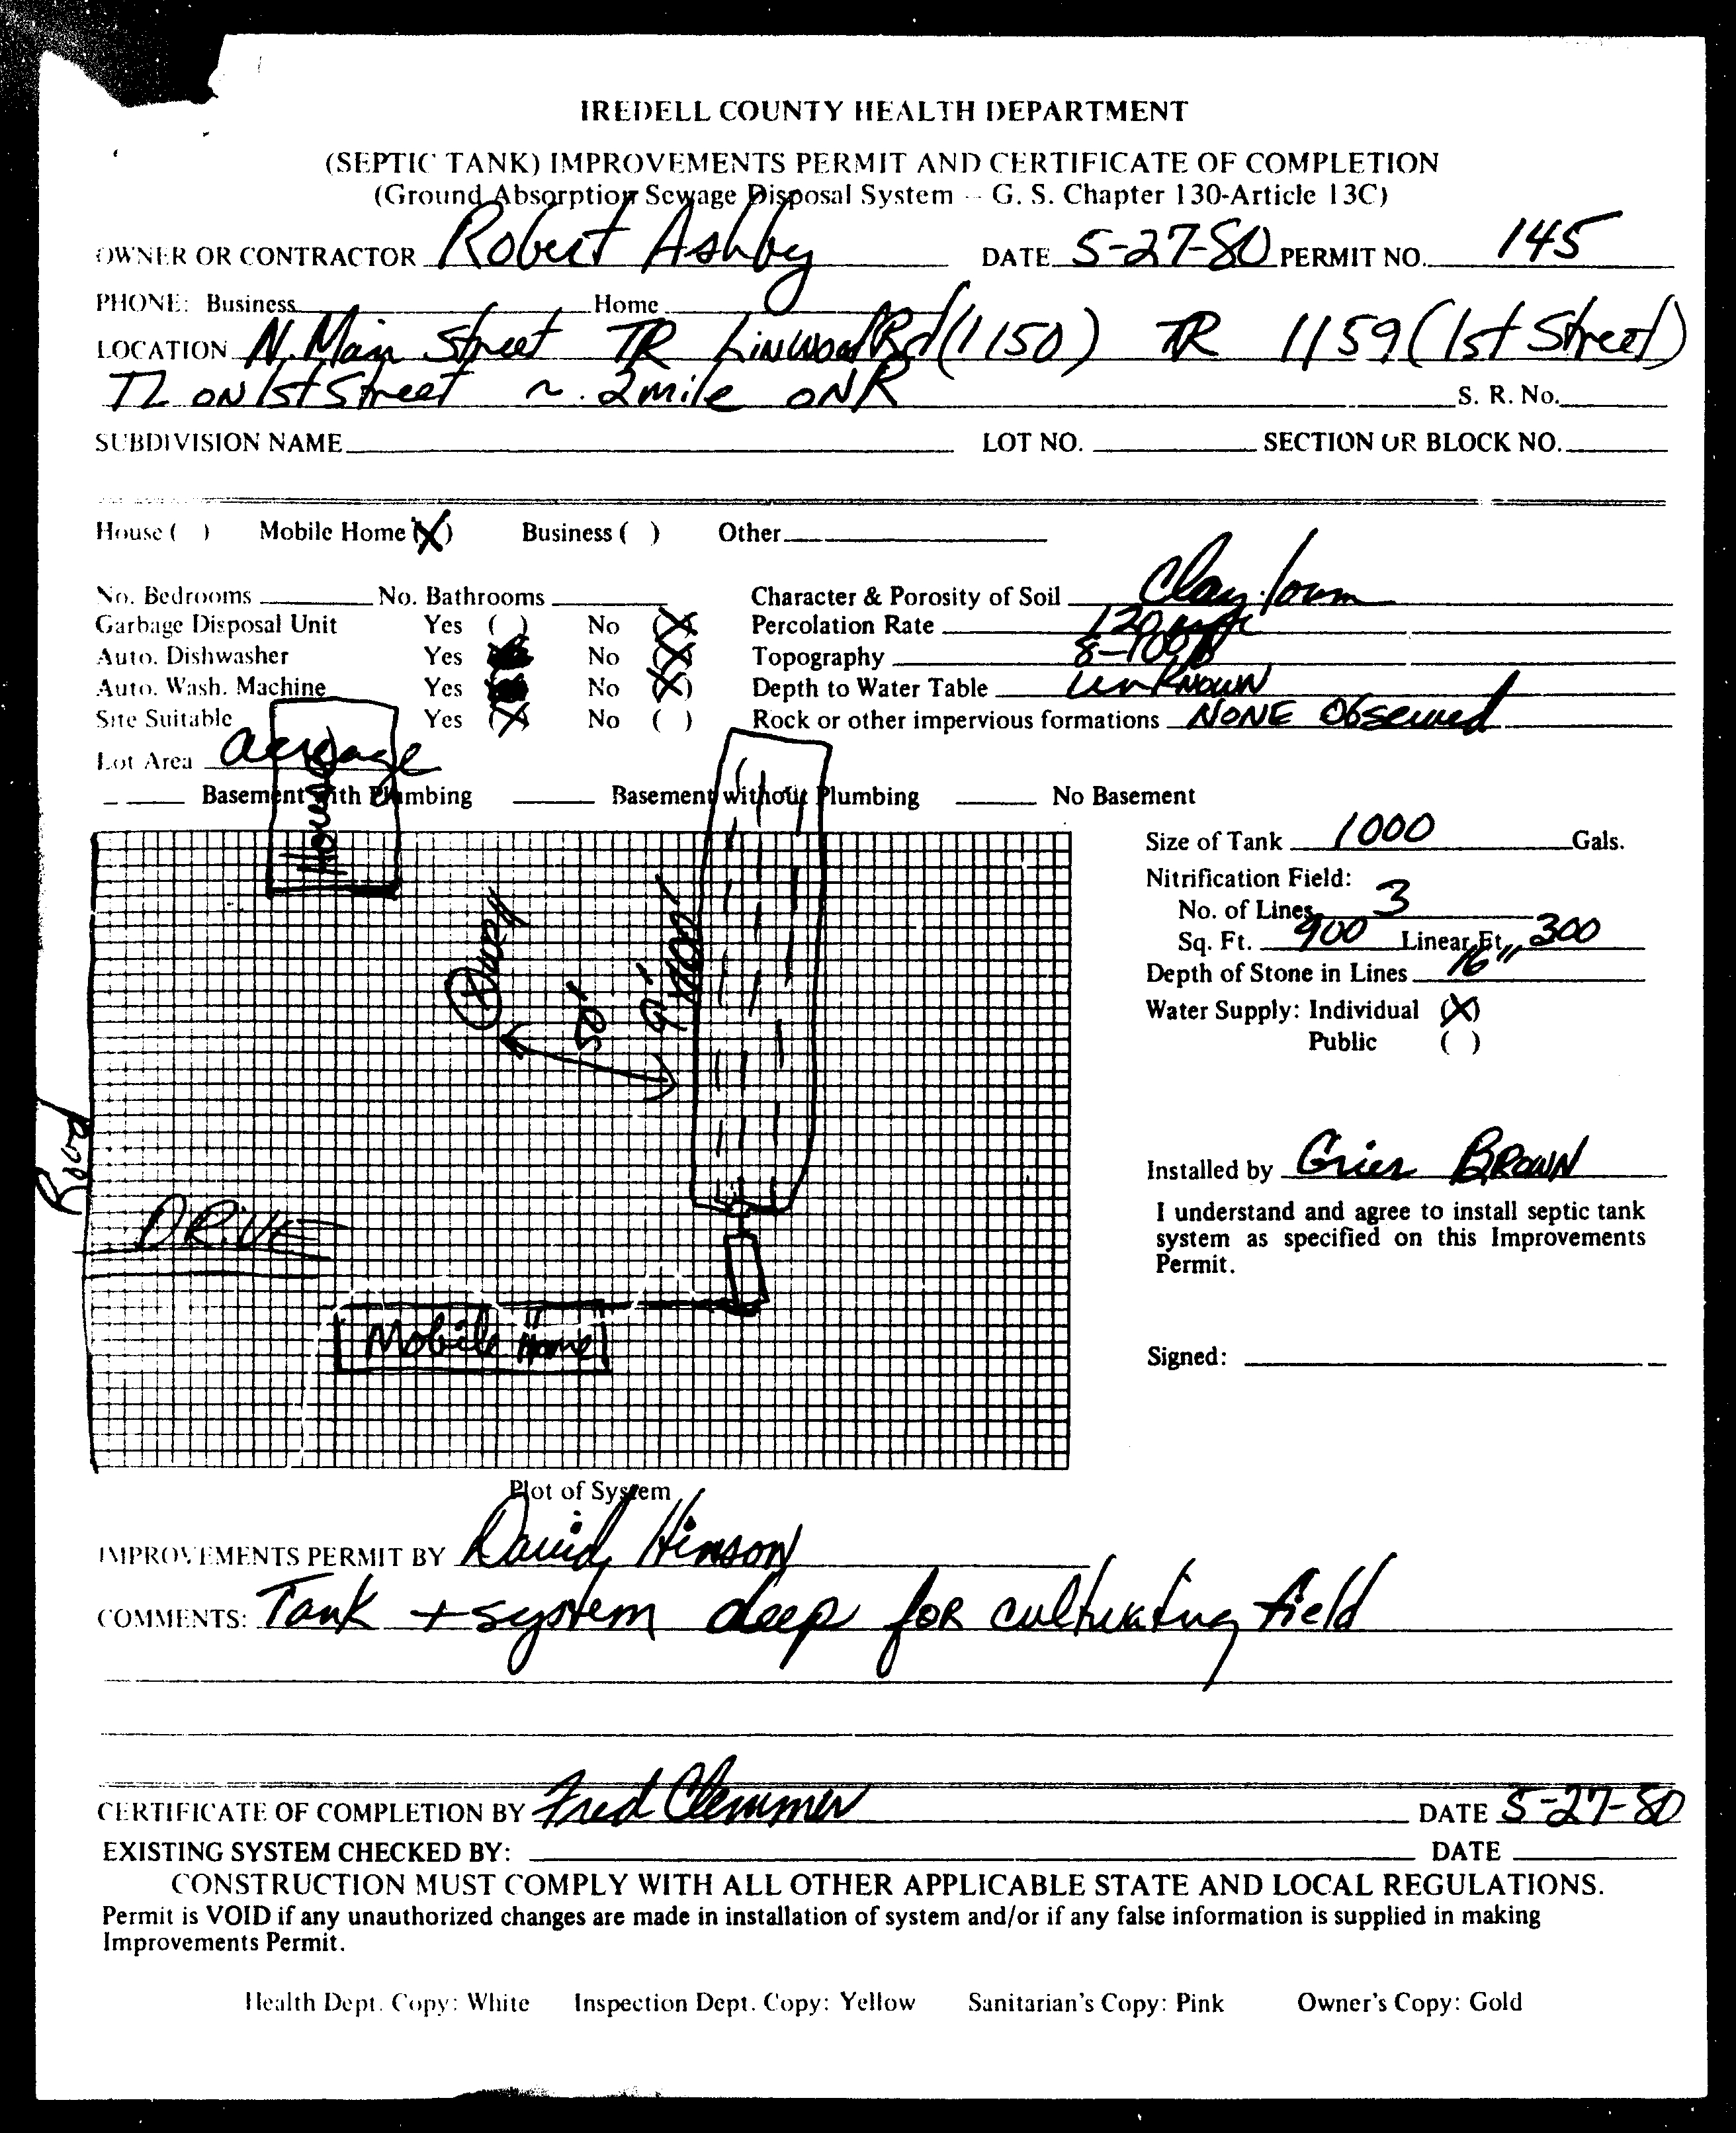 IREDELL COUNTY HEALTH DEPARTMENT
(SEPTIC TANK) IMPROVEMENTS PERMIT AND CERTIFICATE OF COMPLETION
(Ground Absorption Sewage Disposal System -- G. S. Chapter 130-Article 13C)
OWNER OR CONTRACTOR Robert Ashby DATE 5-27-80 PERMIT NO. 145
PHONE: Business Home
LOCATION N. Main Street TR Linwood Rd (1150) TR 1159 (1st Street)
TL on 1st Street ~ .2 mile on R S. R. No.
SUBDIVISION NAME LOT NO. SECTION OR BLOCK NO.
House ( ) Mobile Home (X) Business ( ) Other
No. Bedrooms No. Bathrooms Character & Porosity of Soil Clay loam
Garbage Disposal Unit Yes ( ) No (X) Percolation Rate 120
Auto. Dishwasher Yes No (X) Topography 8-10%
Auto. Wash. Machine Yes No (X) Depth to Water Table unknown
Site Suitable Yes (X) No ( ) Rock or other impervious formations NONE Observed
Lot Area acreage
Basement with Plumbing Basement without Plumbing No Basement
House
50'
Road
DRIVE
Mobile Home
Size of Tank 1000 Gals.
Nitrification Field:
No. of Lines 3
Sq. Ft. 900 Linear Ft. 300
Depth of Stone in Lines 16"
Water Supply: Individual (X)
Public ( )
Installed by Grier Brown
I understand and agree to install septic tank
system as specified on this Improvements
Permit.
Signed:
Plot of System
IMPROVEMENTS PERMIT BY David Hinson
COMMENTS: Tank + system deep for cultivating field
CERTIFICATE OF COMPLETION BY Fred Clemmer DATE 5-27-80
EXISTING SYSTEM CHECKED BY: DATE
CONSTRUCTION MUST COMPLY WITH ALL OTHER APPLICABLE STATE AND LOCAL REGULATIONS.
Permit is VOID if any unauthorized changes are made in installation of system and/or if any false information is supplied in making
Improvements Permit.
Health Dept. Copy: White Inspection Dept. Copy: Yellow Sanitarian's Copy: Pink Owner's Copy: Gold